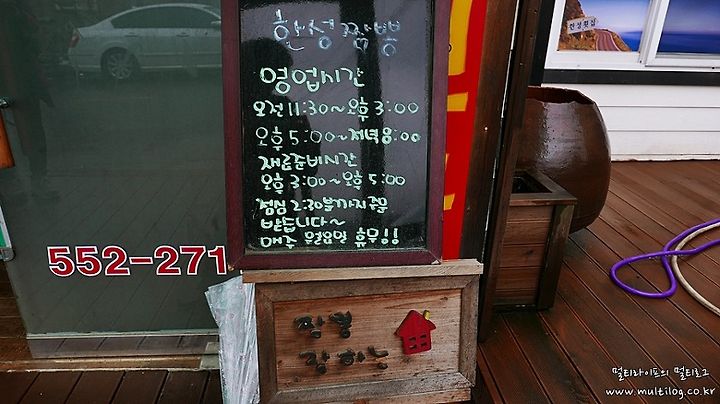 한성짬뽕
영업시간
오전 11:30~오후 3:00
오후 5:00~저녁 8:00
재료준비시간
오후 3:00~오후 5:00
점심 2:30분까지 주문
받습니다~
매주 월요일 휴무!!
552-271
짬뽕
잘하는
멀티라이프의 멀티로그
www.multilog.co.kr